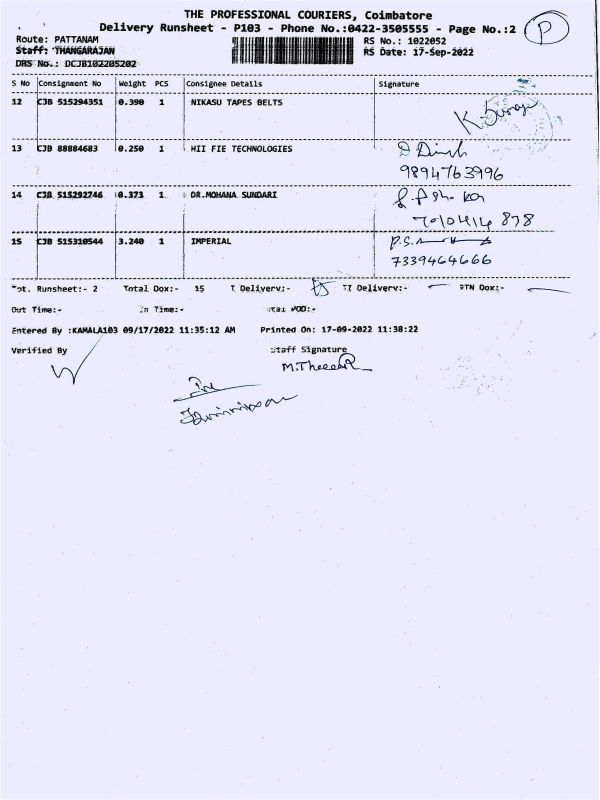 THE PROFESSIONAL COURIERS, Coimbatore
Delivery Runsheet - P103 - Phone No.:0422-3505555 - Page No.:2 P
Route: PATTANAM RS No.: 1022052
Staff: THANGARAJAN RS Date: 17-Sep-2022
DRS No.: DCJB102205202
S No Consignment No Weight PCS Consignee Details Signature
12 CJB 515294351 0.390 1 NIKASU TAPES BELTS
13 CJB 88884683 0.250 1 HII FIE TECHNOLOGIES
9894763996
14 CJB 515292746 0.373 1 DR.MOHANA SUNDARI
15 CJB 515310544 3.240 1 IMPERIAL
7339464666
Tot. Runsheet:- 2 Total Dox:- 15 I Delivery:- II Delivery:- RTN Dox:-
Out Time:- In Time:- Total POD:-
Entered By :KAMALA103 09/17/2022 11:35:12 AM Printed On: 17-09-2022 11:38:22
Verified By Staff Signature